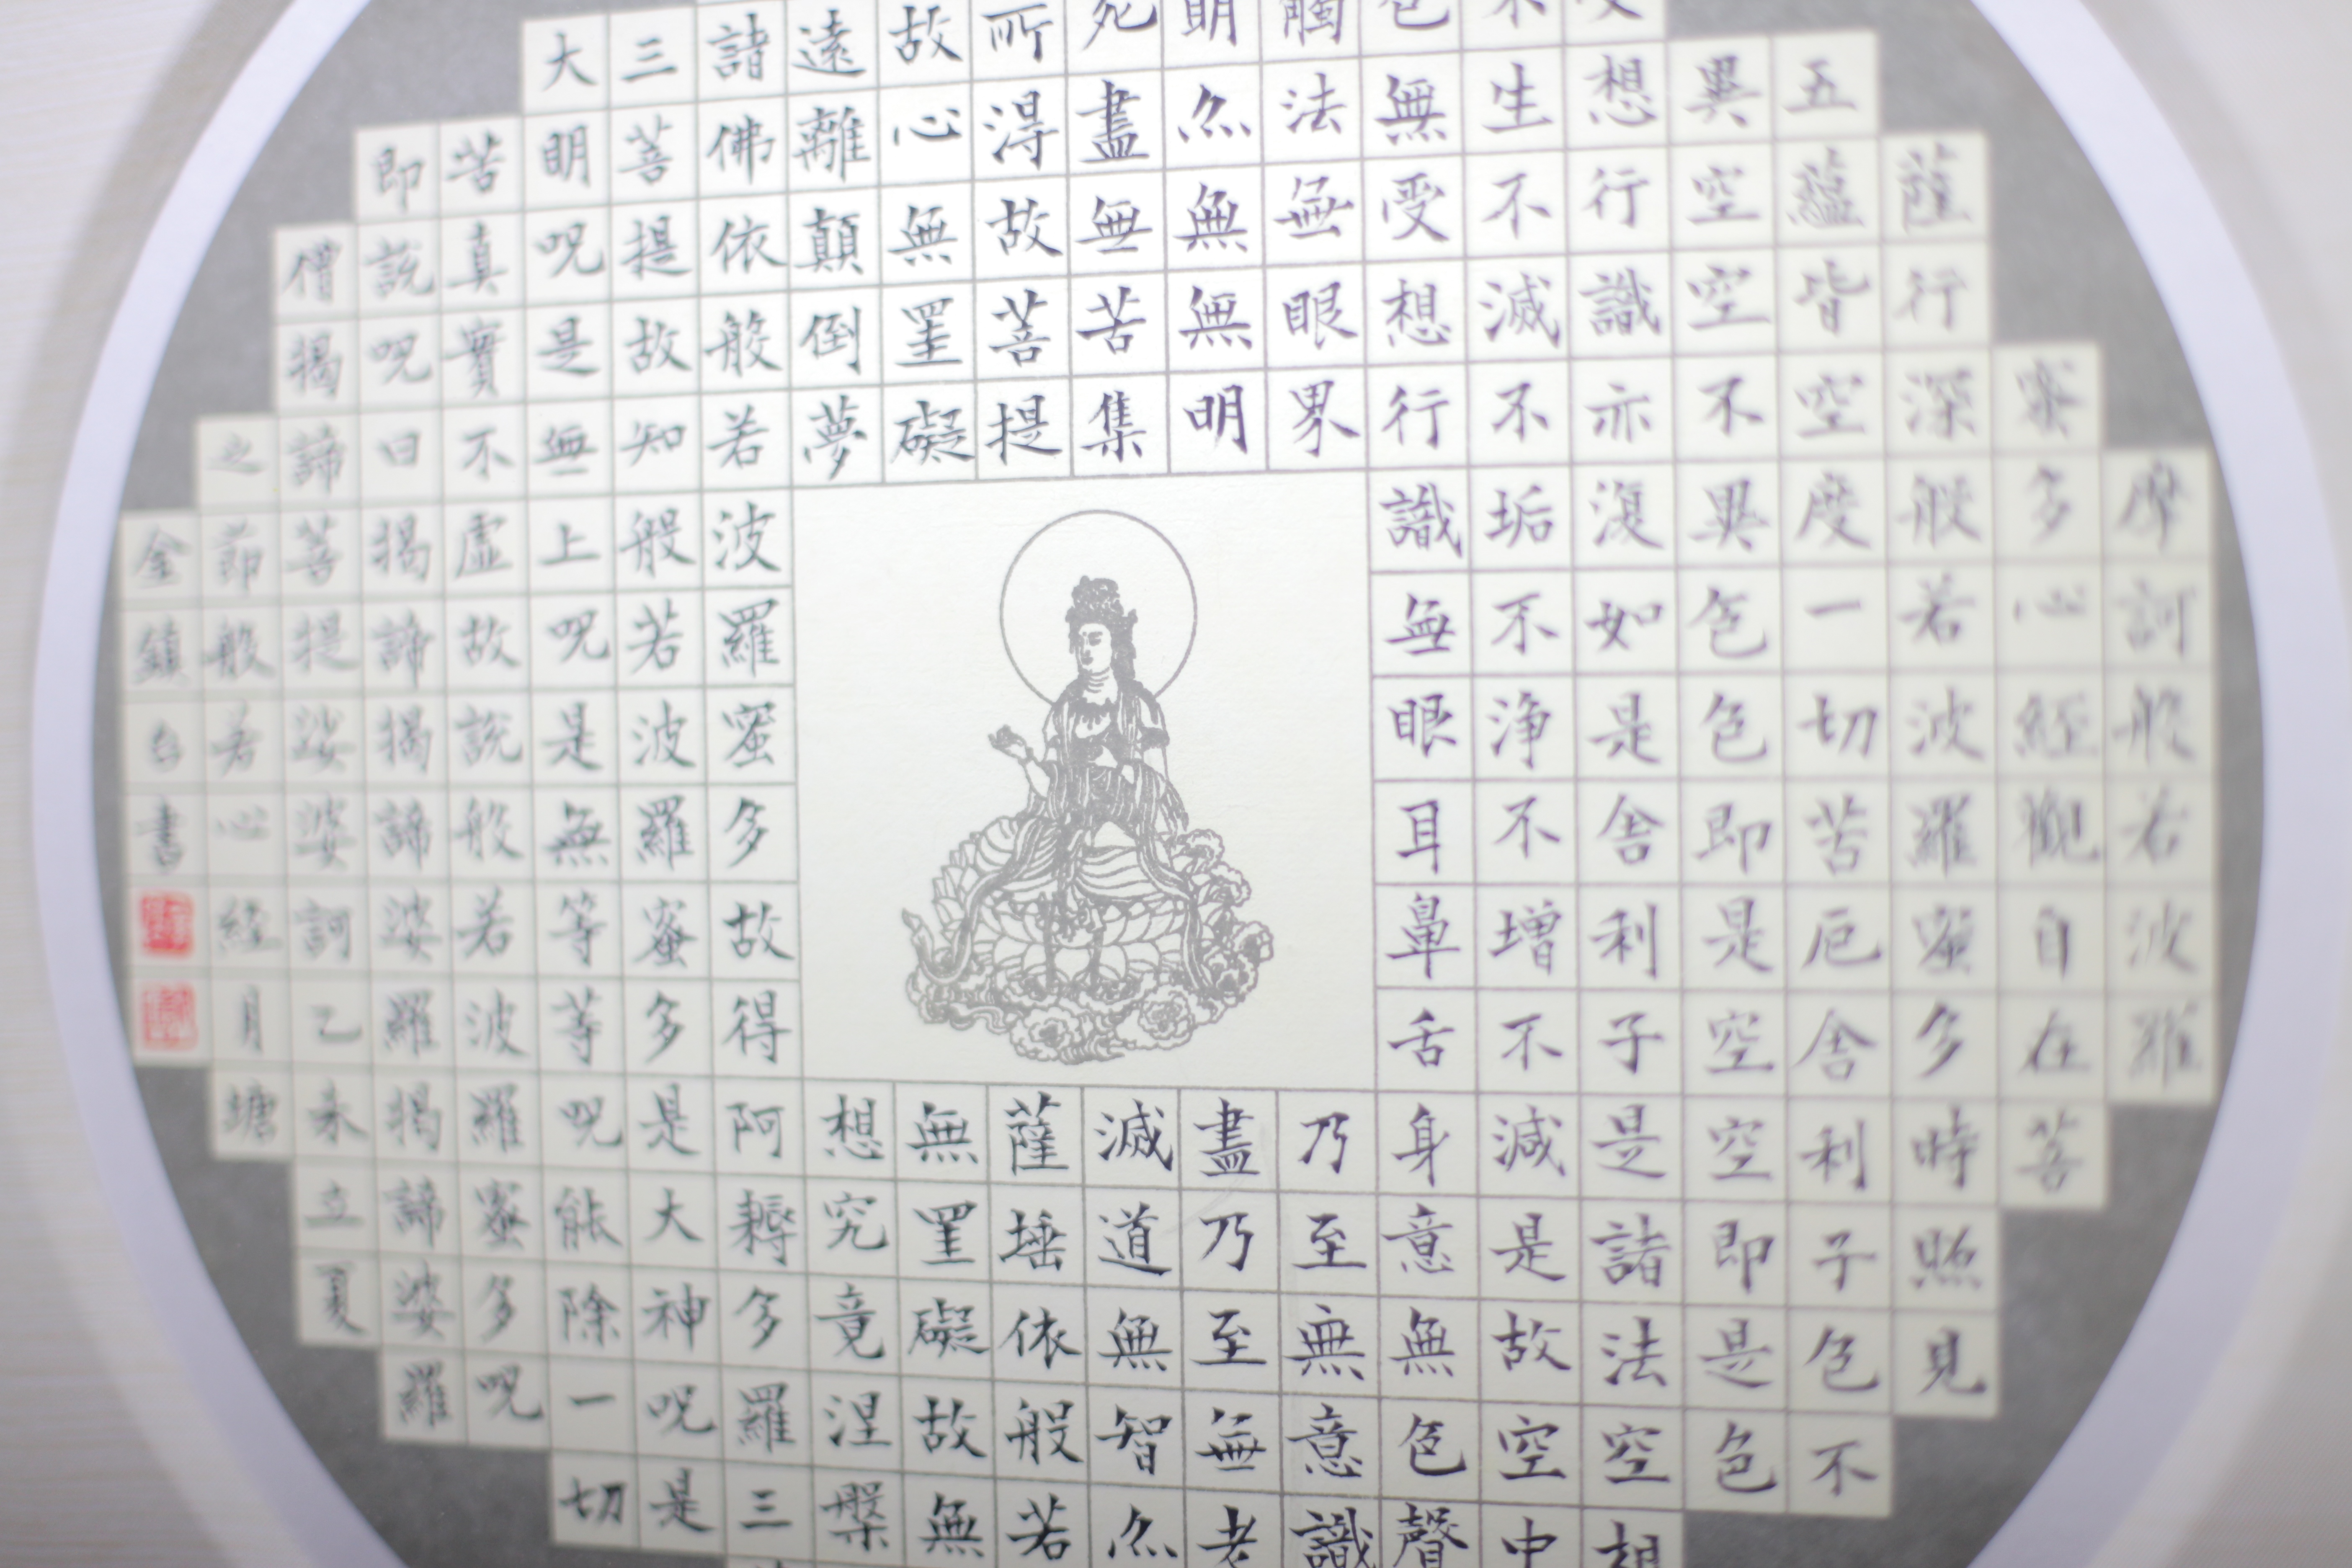 摩訶般若波羅
蜜多心經觀自在菩
薩行深般若波羅蜜多時照見
五蘊皆空度一切苦厄舍利子色不
異空空不異色色即是空空即是色
想行識亦復如是舍利子是諸法空相
不生不滅不垢不淨不增不減是故空中
色無受想行識無眼耳鼻舌身意無色聲
觸法無眼界乃至無意識
明亦無無明盡乃至無老
死盡無苦集滅道無智亦
所得故菩提薩埵依般若
故心無罣礙無罣礙故無
遠離顛倒夢想究竟涅槃
諸佛依般若波羅蜜多故得阿耨多羅三
三菩提故知般若波羅蜜多是大神呪是
大明呪是無上呪是無等等呪能除一切
苦真實不虛故說般若波羅蜜多呪
即說呪曰揭諦揭諦婆羅揭諦婆羅
僧揭諦菩提娑婆訶乙未立夏
之節般若心經月塘
金鎮台書